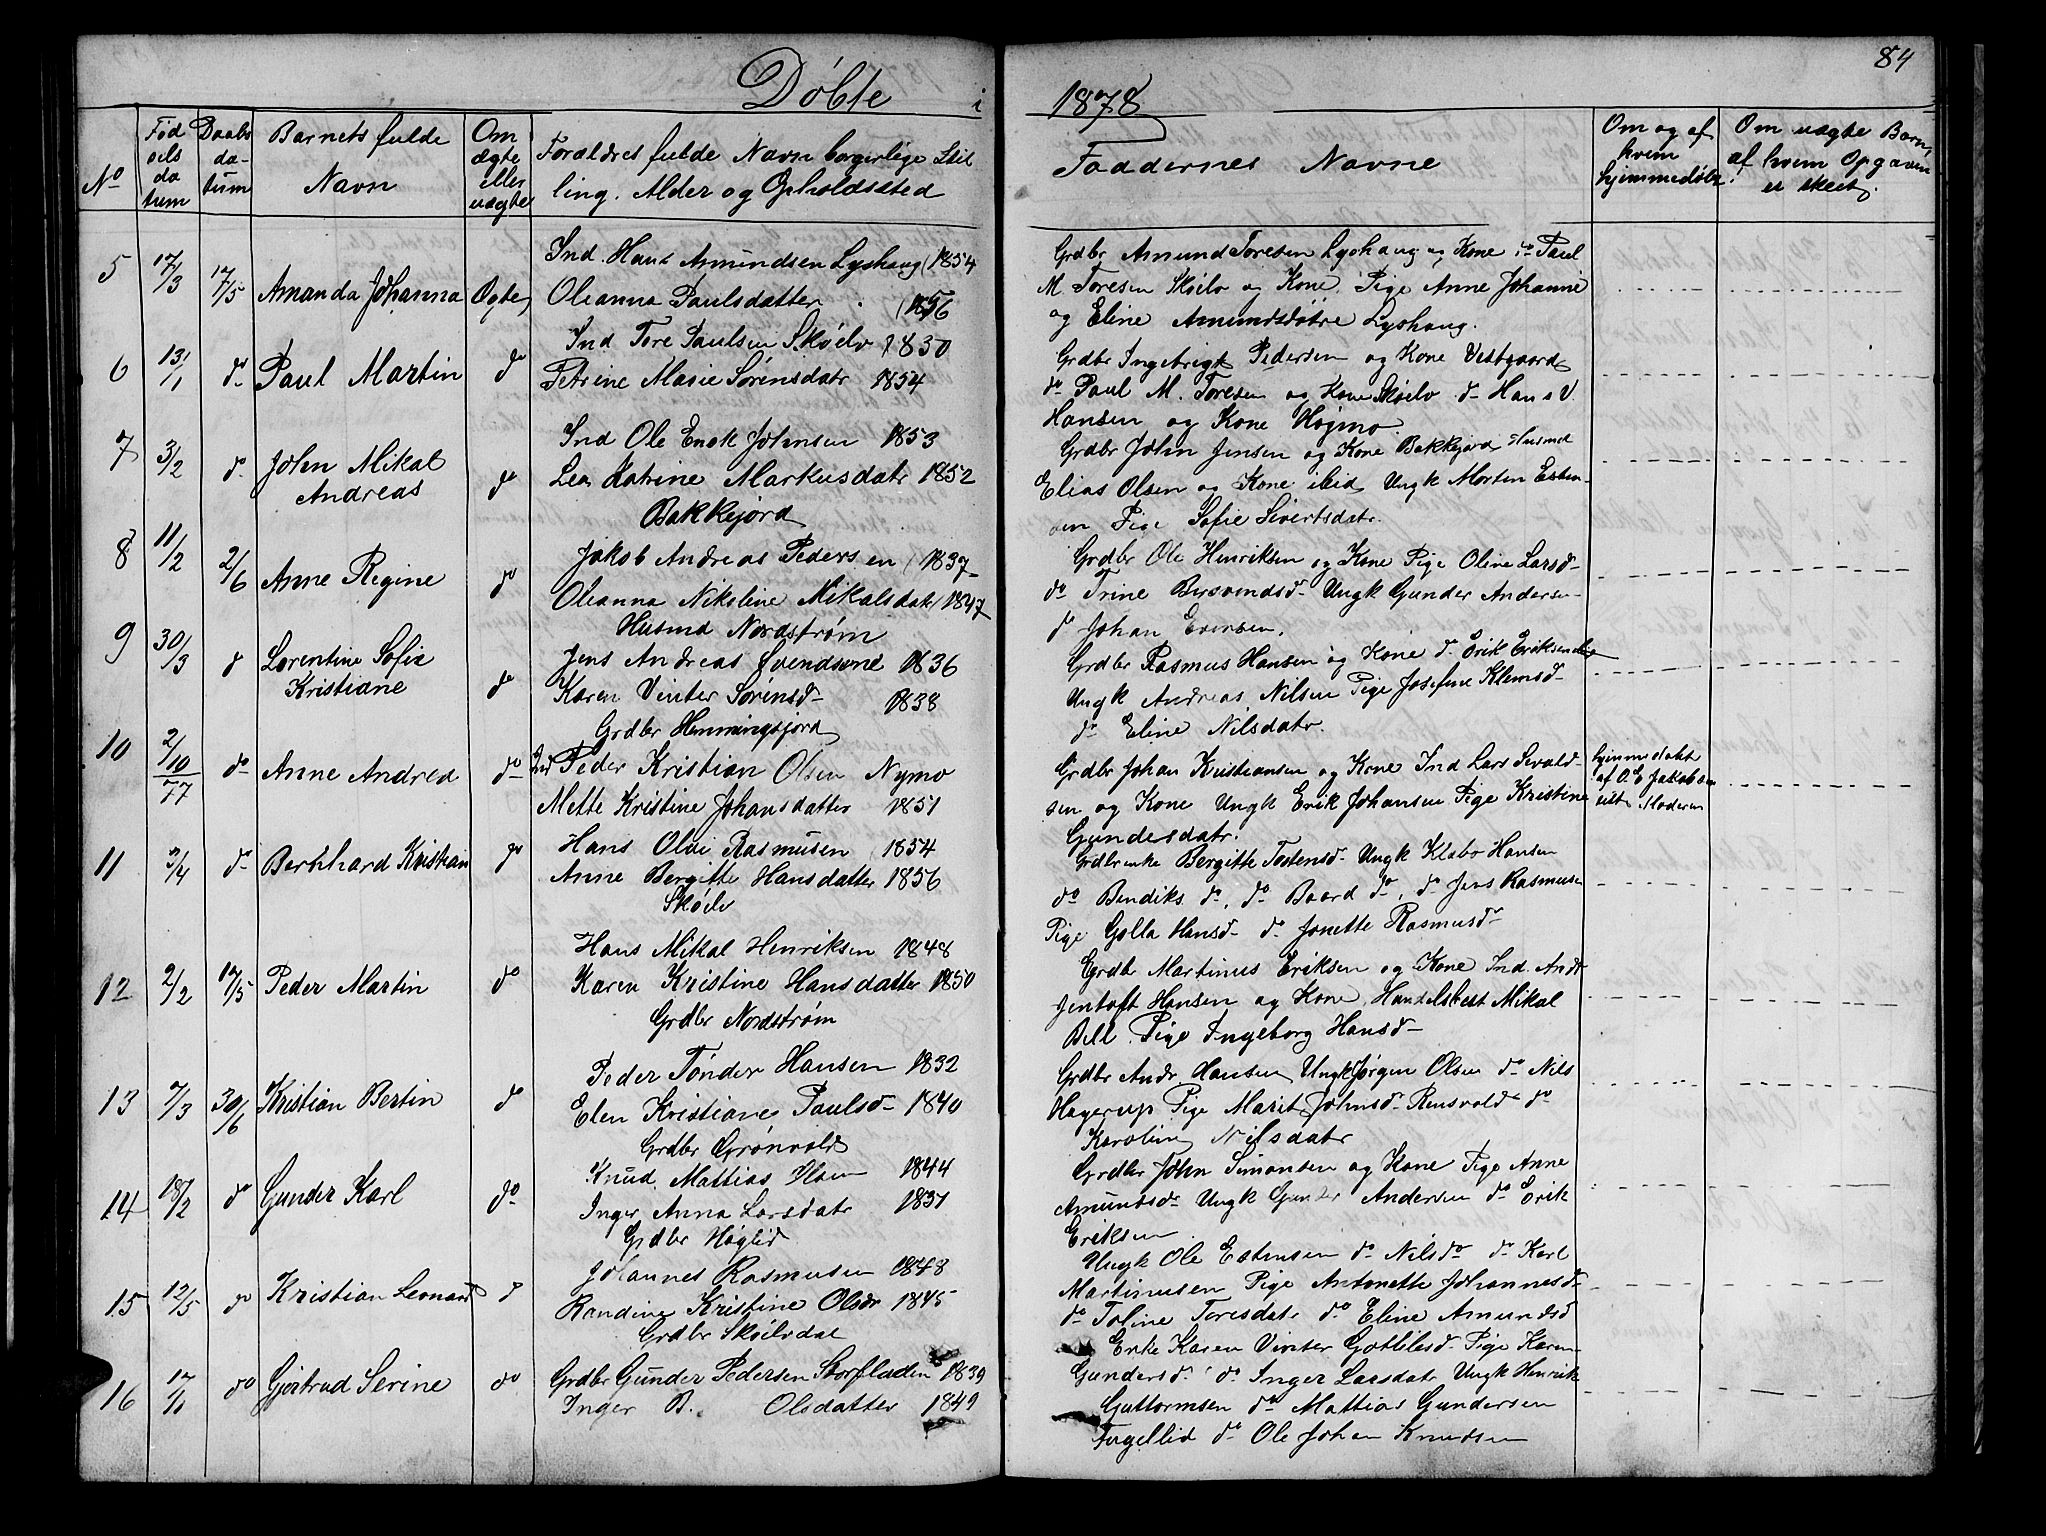 84
Døbte i 1878
No
Fødselsdatum
Daabsdatum
Barnets fulde Navn
Om ægte eller uægte
Forældres fulde Navn borgerlige Stilling. Alder og Opholdssted
Faddernes Navne
Om og af hvem hjemmedøbt
Om uægte Barn, af hvem Opgaven er skeet.
5 17/3 17/5 Amanda Johanna Ægte
Ind. Hans Amundsen Lyshaug 1854
Oleanna Paulsdatter 1856
Grdbr Amund Toresen Lyshaug og Kone do Paul
M. Toresen Skøelv og Kone. Pige Anne Johanne
og Eline Amundsdøtre Lyshaug.
6 13/1 do Paul Martin do
Ind Tore Paulsen Skøelv 1830
Petrine Marie Sørensdatr 1854
Grdbr Ingebrigt Pedersen og Kone Vestgaard
do Paul M. Toresen og Kone Skøelv do Hans V.
Hansen og Kone Høgmo.
7 3/2 do John Mikal
Andreas do
Ind Ole Enok Johnsen 1853
Lea Katrine Markusdatr 1852
Bakkejord
Grdbr John Jensen og Kone Bakkejord Husmd
Elias Olsen og Kone ibid Ungk Morten Esten-
sen Pige Sofie Sivertsdatr.
8 11/2 2/6 Anne Regine do
Jakob Andreas Pedersen 1837
Oleanna Nikoline Mikalsdatr 1847
Husmd Nordstrøm
Grdbr Ole Henriksen og Kone Pige Oline Larsd-
do Trine Bersvendsd- Ungk Gunder Andersen-
do Johan Evensen.
9 30/3 do Lorentine Sofie
Kristiane do
Jens Andreas Svendsen 1836
Karen Vinter Sørensd- 1838
Grdbr Hemmingsjord
Grdbr Rasmus Hansen og Kone do Erik Eriksen
Ungk Andreas Nilsen Pige Josefine Klemsd-
do Eline Nilsdatr.
10 2/10 77 do Anne Andrea do
Ind Peder Kristian Olsen Nymo
Mette Kristine Johansdatter 1851
Grdbr Johan Kristiansen og Kone Ind Lars Sivald-
sen og Kone Ungk Erik Johansen Pige Kristine
Gundersdatr.
hjemmedøbt
af O. E. Jakobsen
Moderen
11 3/4 do Bernhard Kristian do
Hans Olai Rasmusen 1854
Anne Bergitte Hansdatter 1856
Skøelv
Grdbrenke Bergitte Tostensd- Ungk Klabo Hansen
do Bendiks do, do Baard do, do Jens Rasmusen
Pige Golla Hansd- do Jonette Rasmusd-
12 2/2 17/5 Peder Martin do
Hans Mikal Henriksen 1848
Karen Kristine Hansdatter 1850
Grdbr Nordstrøm
Grdbr Martinus Eriksen og Kone Ind. Andr
Jentoft Hansen og Kone, Handelsbest Mikal
Bell. Pige Ingeborg Hansd-
13 7/3 30/6 Kristian Bertin do
Peder Tønder Hansen 1832
Elen Kristiane Paulsd- 1840
Grdbr Grønvold
Grdbr Andr Hansen, Ungk Jørgen Olsen do Nils
Hagerup Pige Marit Johnsd- Rensvold do
Karoline Nilsdatr
14 18/2 do Gunder Karl do
Knud Mattias Olsen 1844
Inger Anna Larsdatr 1837
Grdbr Høglid
Grdbr John Simonsen og Kone Pige Anne
Amundsd- Ungk Gunder Andersen do Erik
Eriksen
15 12/5 do Kristian Leonard do
Johannes Rasmusen 1843
Randine Kristine Olsdr 1845
Grdbr Skøelvdal
Ungk Ole Estensen do Nils do do Karl
Martinusen Pige Antonette Johannesd-
do Toline Toresdatr do Eline Amundsd
16 17/1 do Gjertrud Serine do
Grdbr Gunder Pedersen Storfladen 1839
Inger B. Olsdatter 1849
Enke Karen Vinter Gottlibsd- Pige Karen
Gundersd- do Inger Larsdatr Ungk Henrik
Guttormsen do Mattias Gundersen
Fugellid do Ole Johan Knudsen